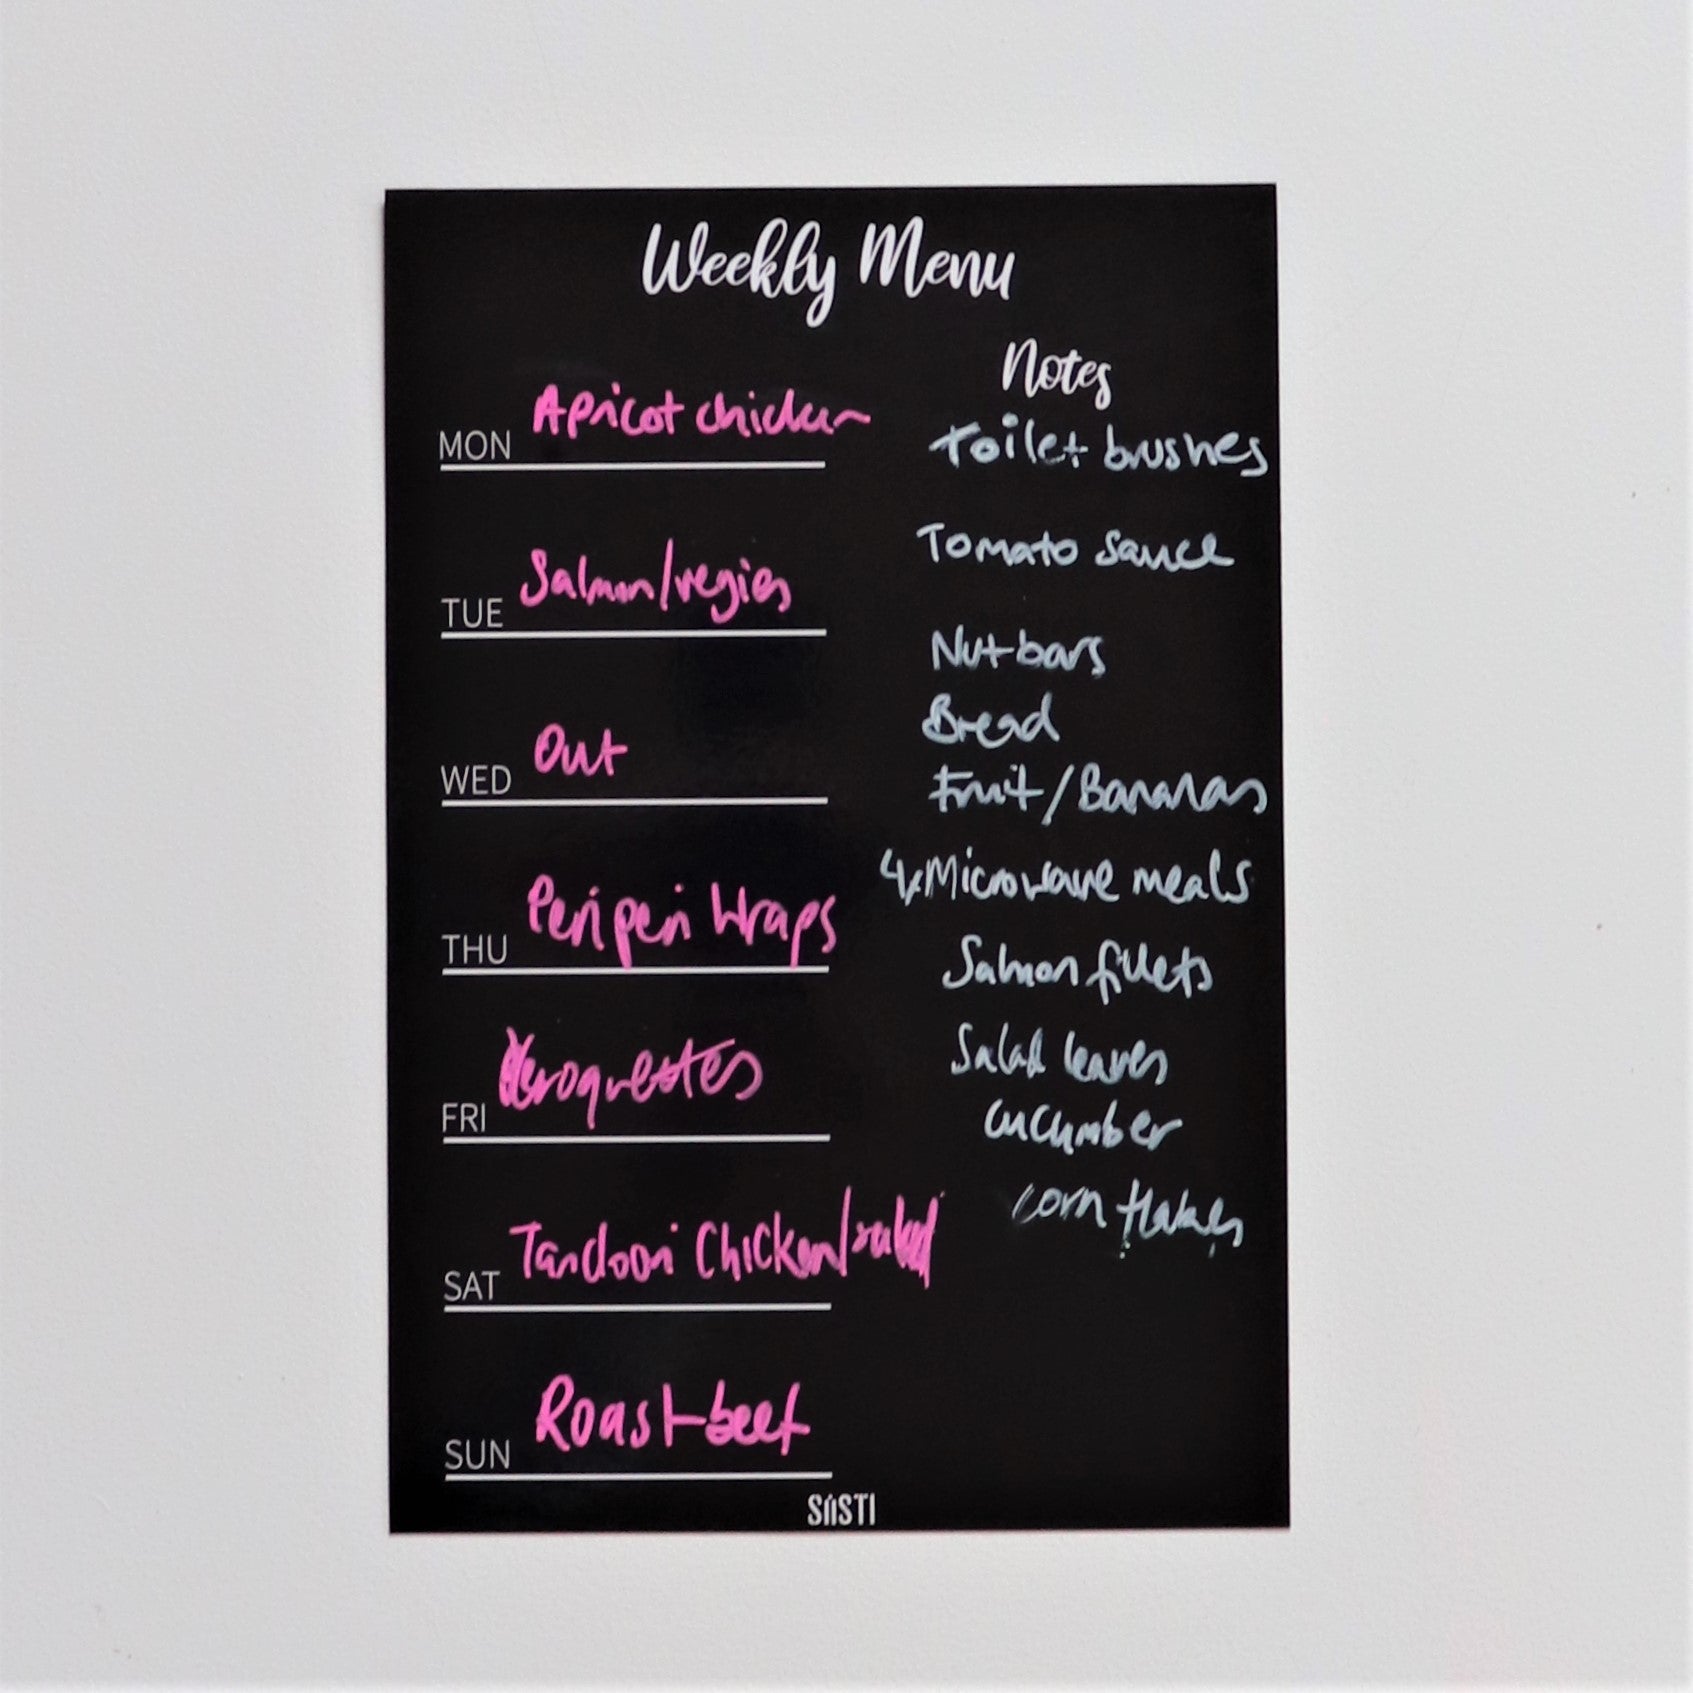 Weekly Menu
Notes
MON Apricot chicken
TUE Salmon/vegies
WED Out
THU Peri peri Wraps
FRI croquettes
SAT Tandoori Chicken/salad
SUN Roast beef
Toilet brushes
Tomato sauce
Nut bars
Bread
Fruit/Bananas
4x Microwave meals
Salmon fillets
Salad leaves
cucumber
corn flakes
SIISTI